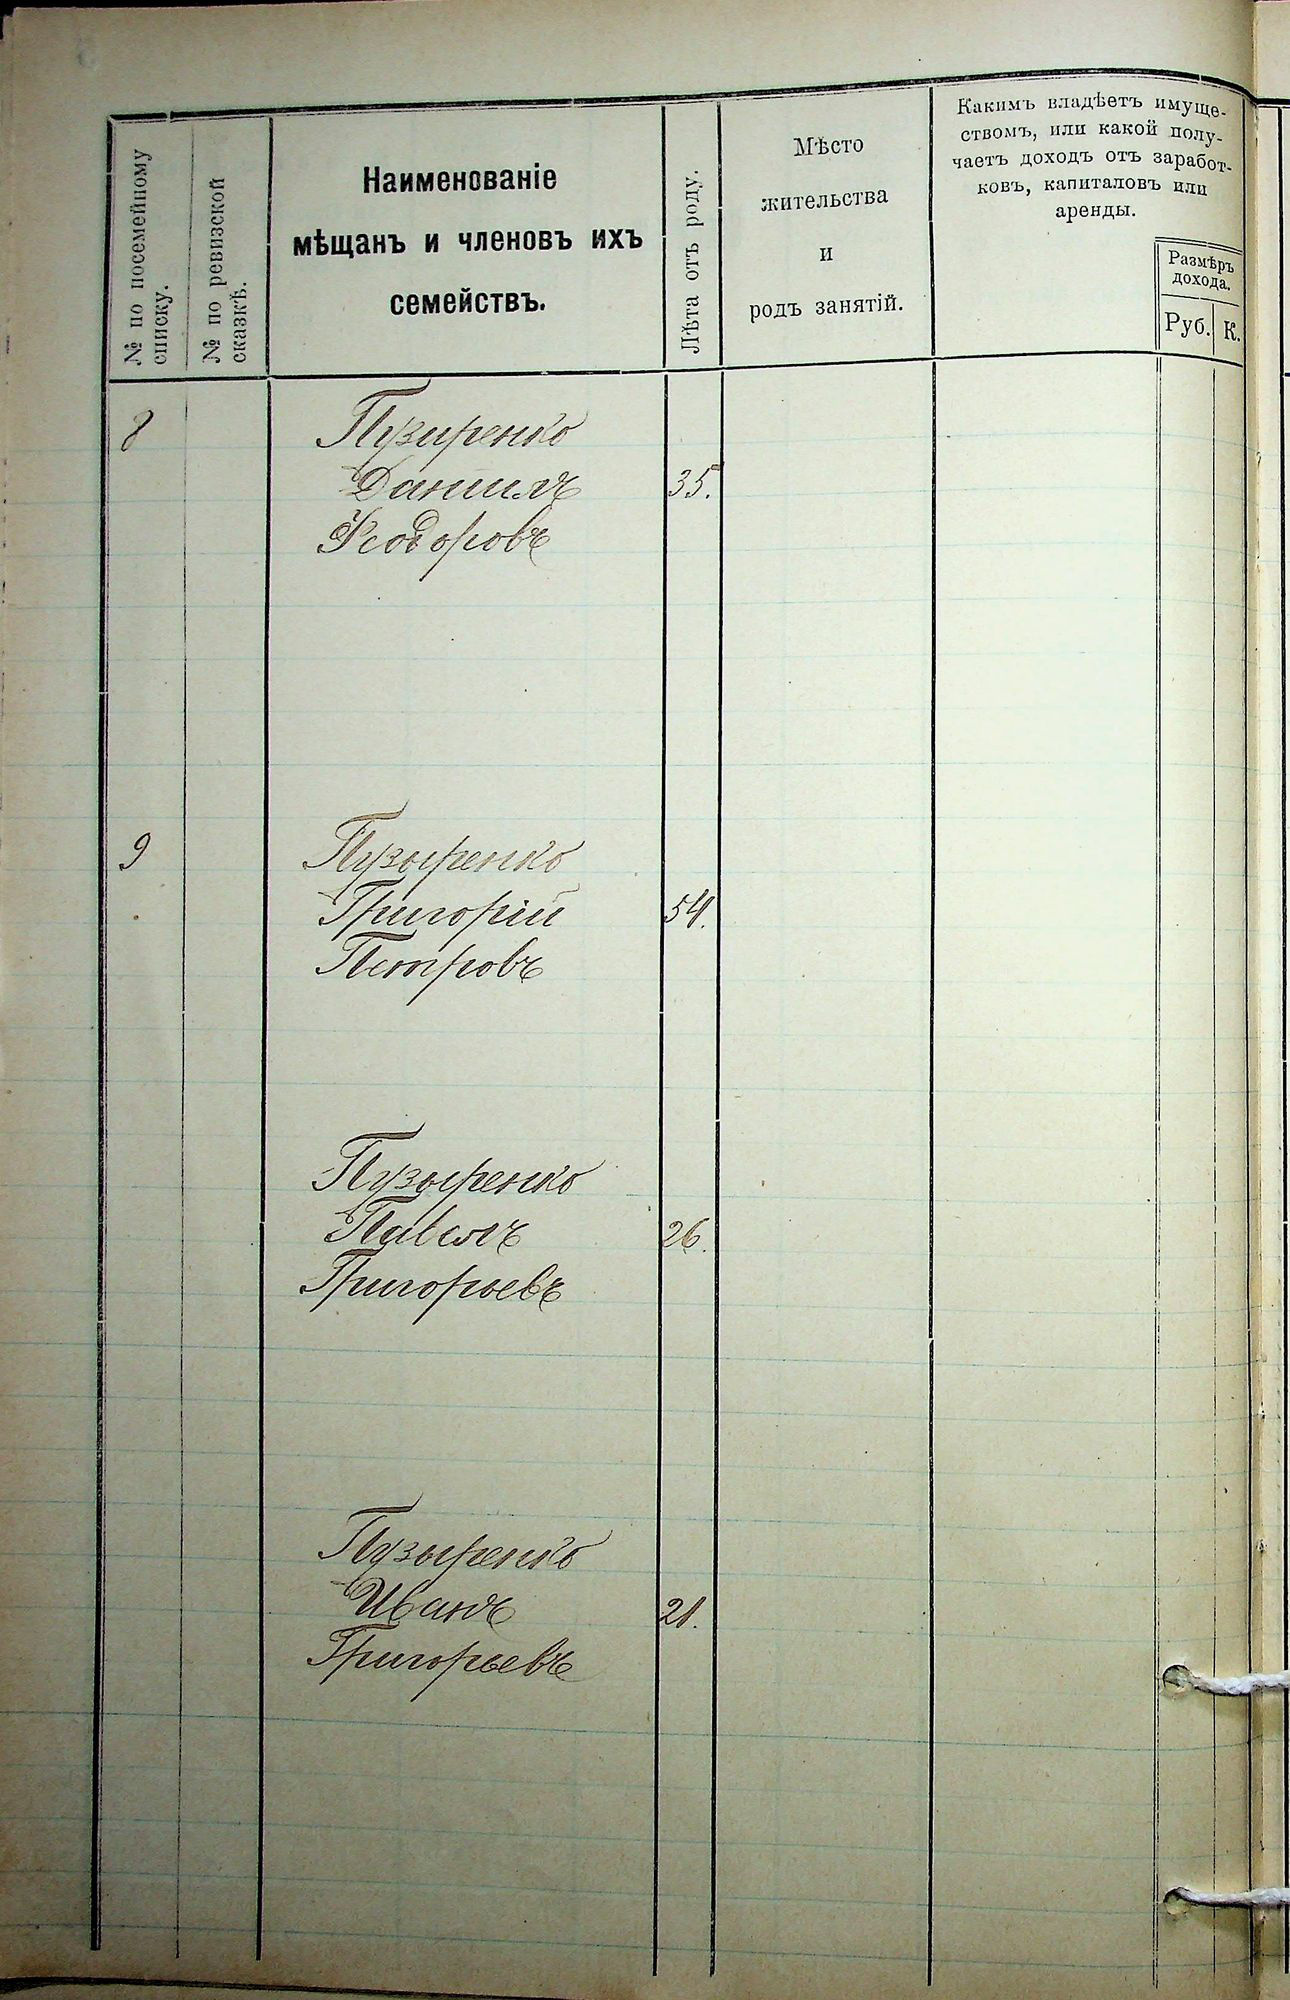 № по посемейному
списку.
№ по ревизской
сказкѣ.
Наименованіе
мѣщанъ и членовъ ихъ
семействъ.
Лѣта отъ роду.
Мѣсто
жительства
и
родъ занятій.
Какимъ владѣетъ имуще-
ствомъ, или какой полу-
чаетъ доходъ отъ заработ-
ковъ, капиталовъ или
аренды.
Размѣръ
дохода.
Руб. К.
8 Пузиренко
Даніилъ 35.
Феодоровъ
9 Пузыренко
Григорій 54.
Петровъ
Пузыренко
Павелъ 26.
Григорьевъ
Пузыренко
Иванъ 21.
Григорьевъ